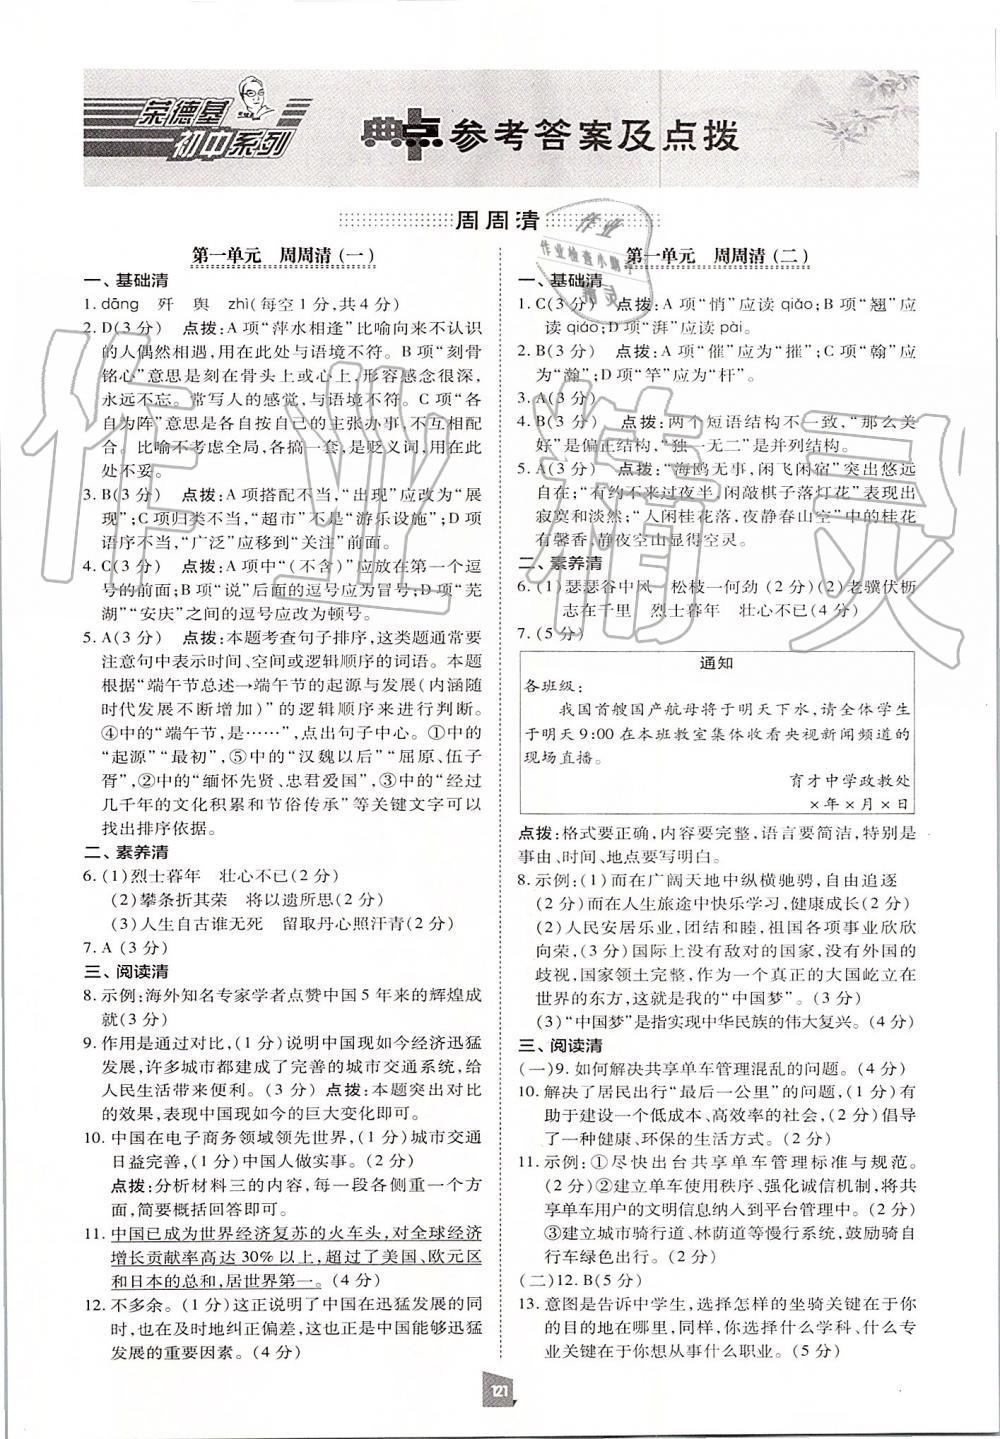 荣德基
初中系列
典点 参考答案及点拨
周周清
第一单元 周周清(一)
一、基础清
1. dāng 歼 舆 zhì(每空1分,共4分)
2. D(3分) 点拨:A项“萍水相逢”比喻向来不认识
的人偶然相遇,用在此处与语境不符。B项“刻骨
铭心”意思是刻在骨头上或心上,形容感念很深,
永远不忘。常写人的感觉,与语境不符。C项“各
自为阵”意思是各自按自己的主张办事,不互相配
合。比喻不考虑全局,各搞一套,是贬义词,用在此
处不妥。
3. B(3分) 点拨:A项搭配不当,“出现”应改为“展
现”;C项归类不当,“超市”不是“游乐设施”;D项
语序不当,“广泛”应移到“关注”前面。
4. C(3分) 点拨:A项中“(不含)”应放在第一个逗
号的前面;B项“说”后面的逗号应为冒号;D项“芜
湖”“安庆”之间的逗号应改为顿号。
5. A(3分) 点拨:本题考查句子排序,这类题通常要
注意句中表示时间、空间或逻辑顺序的词语。本题
根据“端午节总述→端午节的起源与发展(内涵随
时代发展不断增加)”的逻辑顺序来进行判断。
④中的“端午节,是……”,点出句子中心。①中的
“起源”“最初”,⑤中的“汉魏以后”“屈原、伍子
胥”,②中的“缅怀先贤、忠君爱国”,③中的“经过
几千年的文化积累和节俗传承”等关键文字可以
找出排序依据。
二、素养清
6. (1)烈士暮年 壮心不已(2分)
(2)攀条折其荣 将以遗所思(2分)
(3)人生自古谁无死 留取丹心照汗青(2分)
7. A(3分)
三、阅读清
8. 示例:海外知名专家学者点赞中国5年来的辉煌成
就(3分)
9. 作用是通过对比,(1分)说明中国现如今经济迅猛
发展,许多城市都建成了完善的城市交通系统,给
人民生活带来便利。(3分) 点拨:本题突出对比
的效果,表现中国现如今的巨大变化即可。
10. 中国在电子商务领域领先世界,(1分)城市交通
日益完善,(1分)中国人做实事。(1分)
点拨:分析材料三的内容,每一段各侧重一个方
面,简要概括回答即可。
11. 中国已成为世界经济复苏的火车头,对全球经济
增长贡献率高达30%以上,超过了美国、欧元区
和日本的总和,居世界第一。(4分)
12. 不多余。(1分)这正说明了中国在迅猛发展的同
时,也在及时地纠正偏差,这也正是中国能够迅猛
发展的重要因素。(4分)
第一单元 周周清(二)
一、基础清
1. C(3分) 点拨:A项“悄”应读qiǎo;B项“翘”应
读qiáo;D项“湃”应读pài。
2. B(3分) 点拨:A项“催”应为“摧”;C项“翰”应
为“瀚”;D项“竿”应为“杆”。
3. A(3分)
4. B(3分) 点拨:两个短语结构不一致,“那么美
好”是偏正结构,“独一无二”是并列结构。
5. A(3分) 点拨:“海鸥无事,闲飞闲宿”突出悠远
自在;“有约不来过夜半,闲敲棋子落灯花”表现出
寂寞和淡然;“人闲桂花落,夜静春山空”中的桂花
有馨香,静夜空山显得空灵。
二、素养清
6. (1)瑟瑟谷中风 松枝一何劲(2分)(2)老骥伏枥
志在千里 烈士暮年 壮心不已(4分)
7. (5分)
通知
各班级:
我国首艘国产航母将于明天下水,请全体学生
于明天9:00在本班教室集体收看央视新闻频道的
现场直播。
育才中学政教处
×年×月×日
点拨:格式要正确,内容要完整,语言要简洁,特别是
事由、时间、地点要写明白。
8. 示例:(1)而在广阔天地中纵横驰骋,自由追逐
(2分)而在人生旅途中快乐学习,健康成长(2分)
(2)人民安居乐业,团结和睦,祖国各项事业欣欣
向荣,(3分)国际上没有敌对的国家,没有外国的
歧视,国家领土完整,作为一个真正的大国屹立在
世界的东方,这就是我的“中国梦”。(3分)
(3)“中国梦”是指实现中华民族的伟大复兴。(4分)
三、阅读清
(一)9. 如何解决共享单车管理混乱的问题。(4分)
10. 解决了居民出行“最后一公里”的问题。(1分)有
助于建设一个低成本、高效率的社会,(2分)倡导
了一种健康、环保的生活方式。(2分)
11. 示例:①尽快出台共享单车管理标准与规范。
(2分)②建立单车使用秩序、强化诚信机制,将共
享单车用户的文明信息纳入到平台管理中。(2分)
③建立城市骑行道、林荫道等慢行系统,鼓励骑自
行车绿色出行。(2分)
(二)12. B(5分)
13. 意图是告诉中学生,选择怎样的坐骑关键在于你
的目的地在哪里,同样,你选择什么学科、什么专
业关键在于你想从事什么职业。(5分)
121
作业
作业检查小帮手
精灵
作业精灵